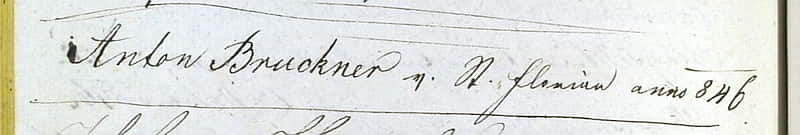 Anton Bruckner v. St. Florian anno 846